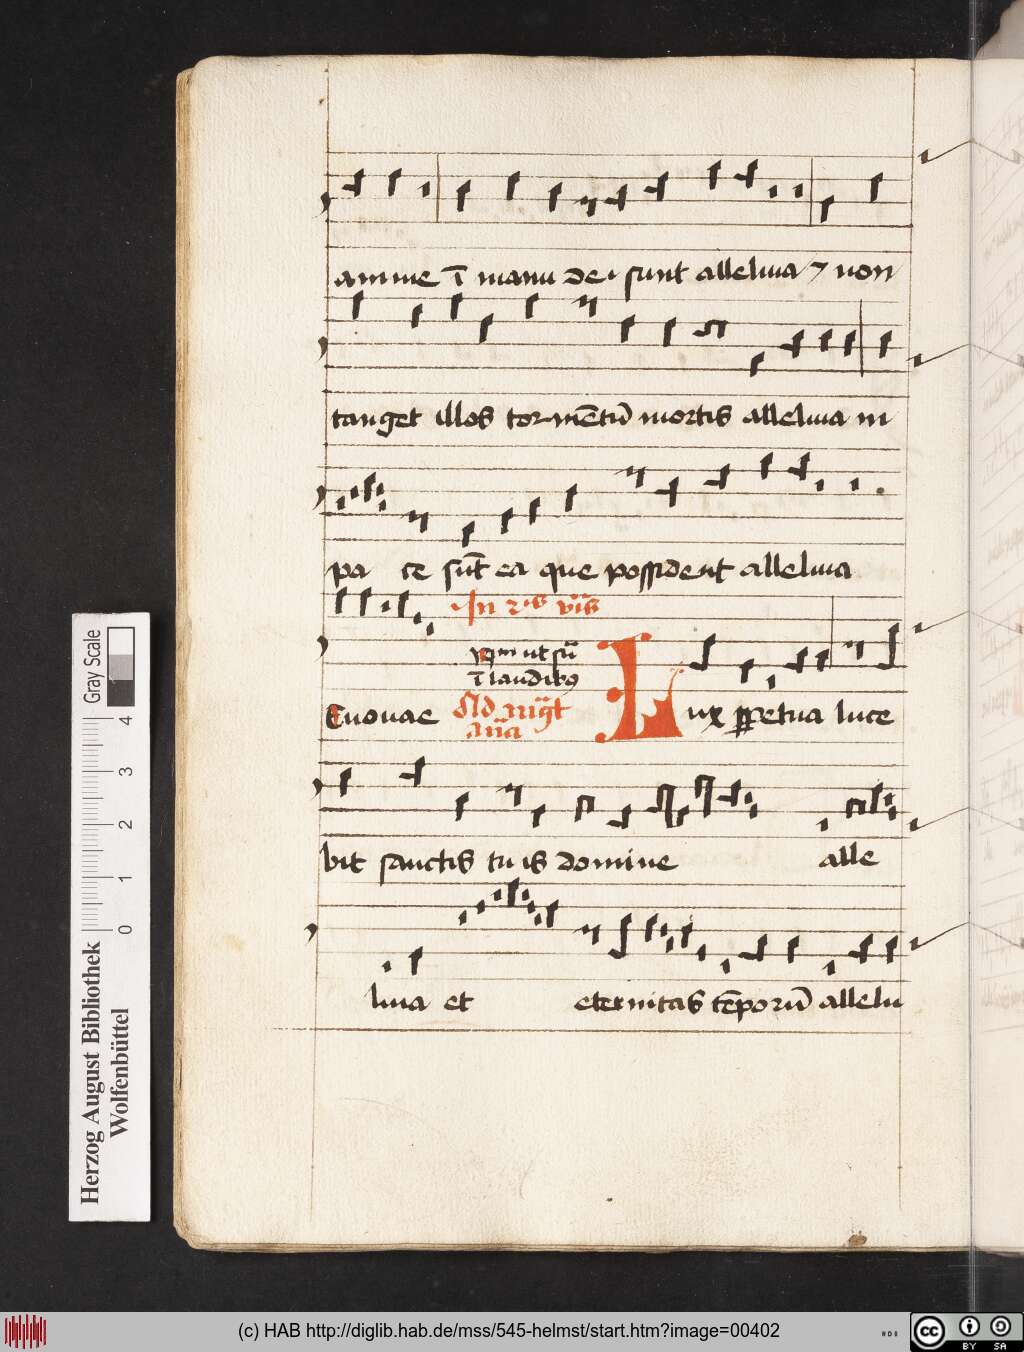 anime ī manu dei sunt alleluia ⁊ non
tanget illos tormētū mortis alleluia in
pa ce sūt ea que possident alleluia
In
ī laudibꝫ
Euouae Ad
aña
Lux ꝑpetua luce
bit sanctis tuis domine alle
luia et eternitas tēporū allelu
Gray Scale
4
3
2
1
0
Herzog August Bibliothek
Wolfenbüttel
(c) HAB http://diglib.hab.de/mss/545-helmst/start.htm?image=00402
cc BY SA